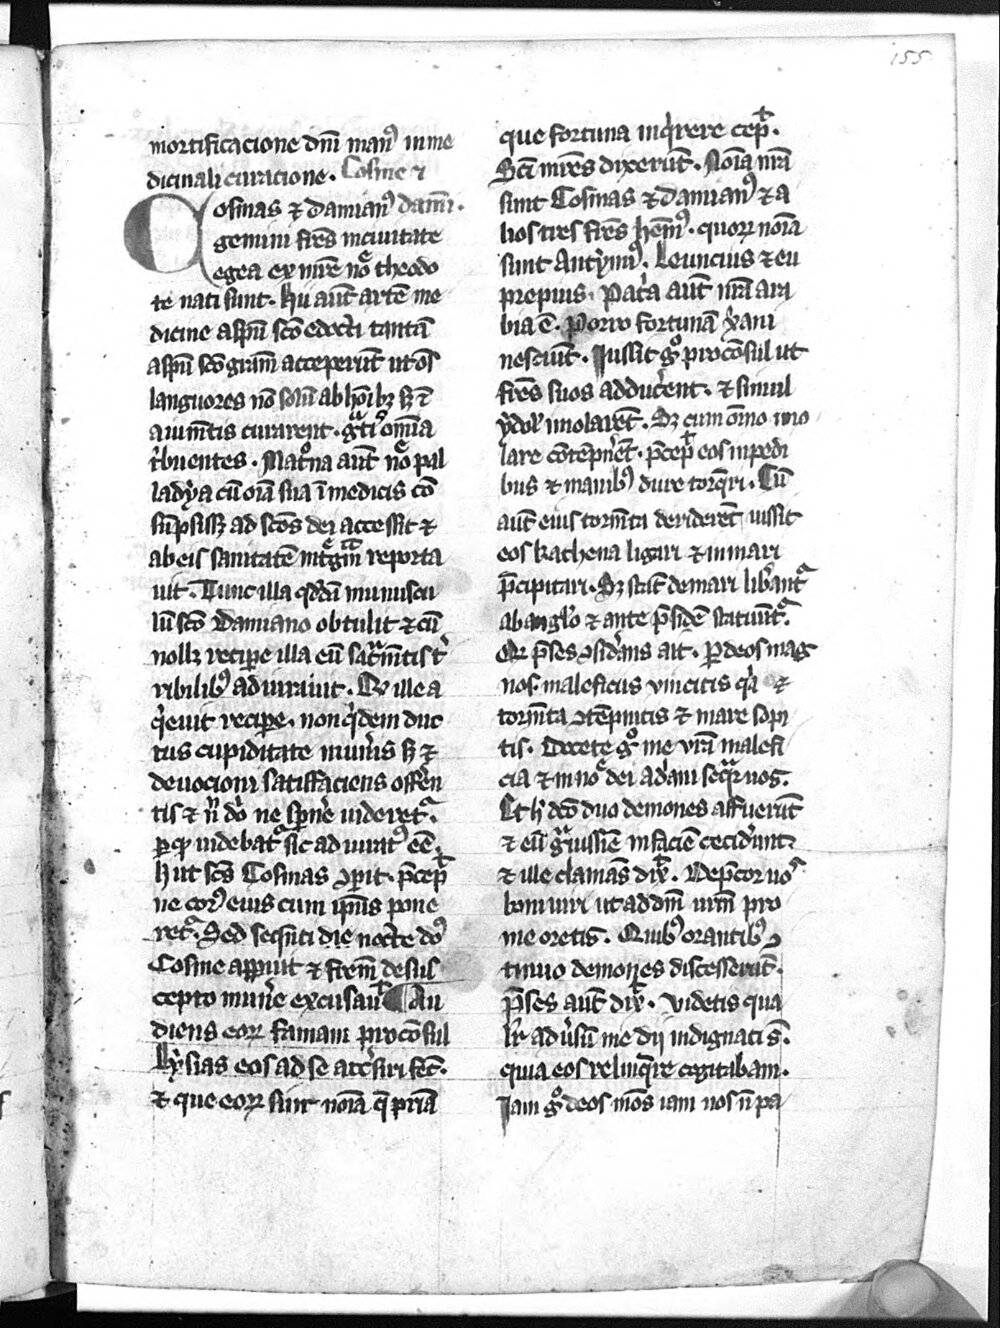 155
mortificacione dn̄i man⁹ in me
dicinali curacione. Cosme ⁊
Cosmas ⁊ damian⁹ damı̄.
gemini fr̄es in ciuitate
egea ex mr̄e noı̄e theodo
te nati sunt. Hii aut̄ artē me
dicine a spū sc̄o edocti tantā
a spū sc̄o gr̄am acceperūt ut oēs
languores nō solū ab hōibꝫ sꝫ ⁊
a iumētis curarent. gͣtis omīa
tͥbuentes. Matͦna aut̄ noı̄e pal
ladẏa cū oīa sua ī medicis cō
sūpsissꝫ ad sc̄os dei accessit ⁊
ab eis sanitatē integͣm reporta
uit. Tunc illa qͦddā munuscu
lū sc̄o Damiano obtulit ⁊ cū
nollꝫ recip̄e illa eū sacͣmētis t̓
ribilibꝰ adiurauit. Qͥ ille a
qͥeuit recip̄e. non qͥdem duc
tus cupiditate mun̓is sꝫ ⁊
deuocioni satisfaciens offer̄
tis ⁊ n̄ dn̄i ne sp̄ne̓ uideret᷑.
ꝑ qͦ uidebat᷑ sic adiurat⁹ eē.
H ut sc̄s Cosmas ꝯperit. p̄cep̄
ne corp⁹ eius cum ip̄ius pone
ret᷑. Sed seqn̄ti die nocte dn̄s
Cosme appuit ⁊ fr̄em de sus
cepto mun̓e excusauit ¶ Au
diens eoꝝ famam proconsul
Lẏsias eos ad se arcersiri fec̄.
⁊ que eoꝝ sint noı̄a q̄ pr̄ia
que fortuna inqͥrere cep̄.
Sc̄i mr̄es dixerūt. Noı̄a nr̄a
sunt Cosmas ⁊ damian⁹ ⁊ a
lios tres fr̄es hēm⁹. quoꝝ noı̄a
sunt Antẏm⁹. Leuncius ⁊ eu
prepius. Patͥa aut̄ nr̄a ara
bia ē. Porro fortunā xp̄ani
nesciūt. Iussit gͦ proconsul ut
fr̄es suos adducer̄ent. ⁊ simul
ẏdol̓ imolarēt. Sꝫ cum om̄ino imo
lare cōtēpner̄et. p̄cep̄ eos in pedi
bus ⁊ manibꝰ dure torqͣri. Cū
aut̄ eius torm̄ta deriderēt iussit
eos kathena ligari ⁊ in mari
p̄cipitari. Sꝫ stat̄ de mari lib̓ant᷑
ab anglo ⁊ ante p̄sidē statuūt᷑.
Qđ p̄ses ꝯsid̓ans ait. Ꝑ deos mag
nos. maleficiis vincitis qͥa ⁊
torm̄ta ꝯtēpnitis ⁊ mare sopi
tis. Docete gͦ me vr̄a malefi
cia ⁊ in noı̄e dei adͥani seqͣr uos.
Et h̓ dc̄o duo demones affuerūt
⁊ eū gͣuissime in faciē cecid̓unt
⁊ ille clamās dix̄. Dep̄cor uos
boni uiri ut ad dn̄m ur̄m pro
me oretis. Quibꝰ orantibꝰ ꝯ
tinuo demones discesserūt.
p̄ses aut̄ dix̄. Videtis qua
lit̓ adu̓sū me dii indignati sūt.
quia eos relinqͥre cogitabam.
Iam gͦ deos meos iam nos n̄ pa